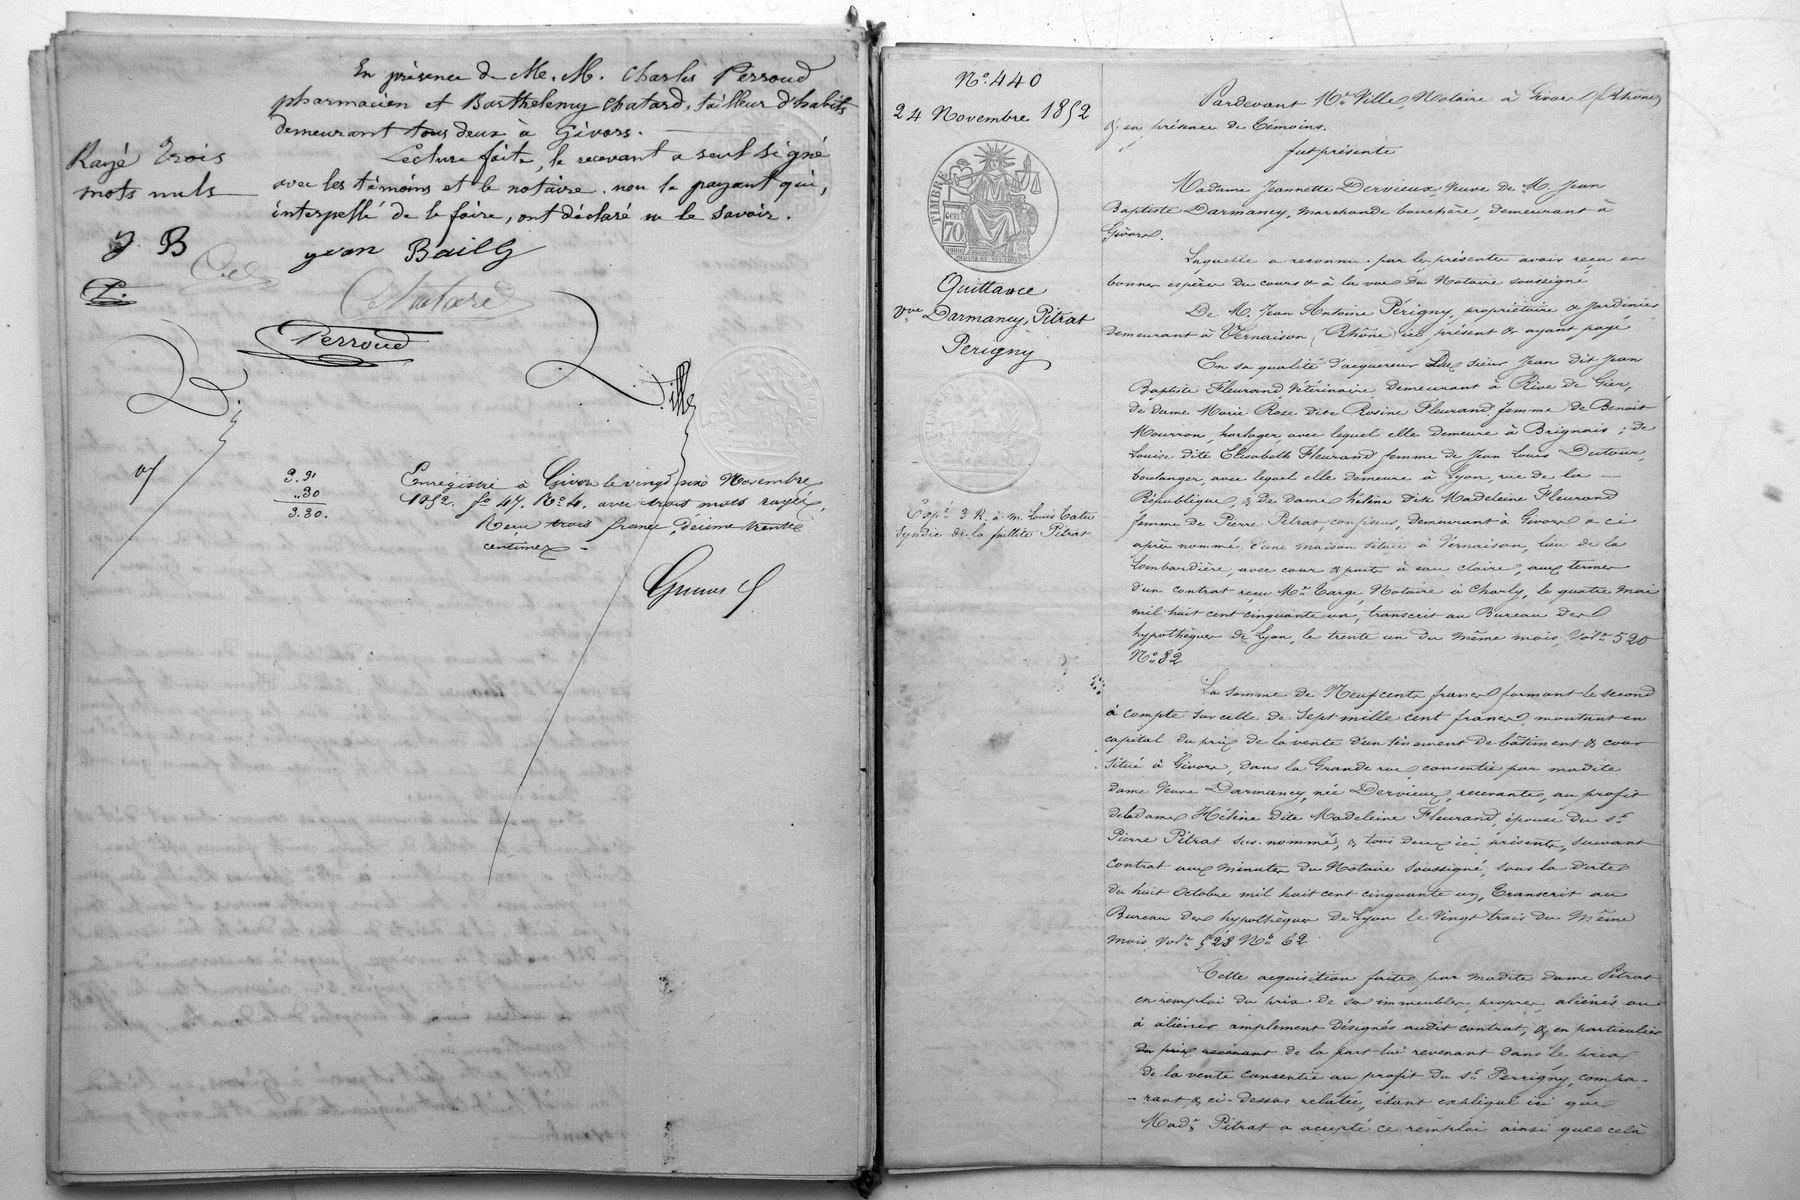 En présence de M.M. Charles Perroud
pharmacien et Barthelemy Chatard, tailleur d'habits
demeurant tous deux à Givors.
Lecture faite, le recevant a seul signé
avec les témoins et le notaire, non le payant qui,
interpellé de le faire, ont déclaré ne le savoir.
Rayé trois
mots nuls
y B
yvan Bailly
Chatard
Perroud
Ville
3. 91
" 30
3. 30.
Enregistré à Givors le vingt six Novembre
1852. fo 47. Ro 4. avec trois mots rayés.
Reçu trois francs, décime trente
centimes
No. 440
24 Novembre 1852
TIMBRE
70
Quittance
Vve Darmancy, Pétrat
Périgny
Expé 3 R. à M. Louis
Syndic de la faillite Pétrat
Pardevant Me Ville, Notaire à Givors (Rhône)
& en présence de témoins.
fut présente
Madame Jeannette Dervieux, Veuve de M. Jean
Baptiste Darmancy, marchande bouchère, demeurant à
Givors.
Laquelle a reconnu par les présentes avoir reçu en
bonnes espèces du cours & à la vue du Notaire soussigné
De M. Jean Antoine Périgny, propriétaire & Jardinier
demeurant à Vernaison (Rhône) ici présent & ayant payé
En sa qualité d'acquéreur Des sieur Jean dit Jean
Baptiste Fleurand, Vétérinaire, Demeurant à Rive de Gier,
de dame Marie Rose dite Rosine Fleurand femme de Benoit
Mourron, horloger, avec lequel elle demeure à Brignais ; de
Louise dite Elisabeth Fleurand femme de Jean Louis Dutour,
boulanger, avec lequel elle demeure à Lyon, rue de la
République, & de dame hélène dite Madeleine Fleurand
femme de Pierre Pétrat, confiseur, demeurant à Givors & ci
après nommé, d'une maison située à Vernaison, lieu de la
Lombardière, avec cour & puits à eau claire, aux termes
d'un contrat reçu Me Targe, Notaire à Charly, le quatre mai
mil huit cent cinquante un, transcrit au Bureau des
hypothèques de Lyon, le trente un du même mois, Vol. 520
No. 32
La somme de Neuf cents francs formant le second
à compte sur celle de Sept mille cent francs, montant en
capital du prix de la vente d'un tènement de bâtiment & cour
situé à Givors, dans la Grande rue, consentie par madite
dame Veuve Darmancy, née Dervieux, recevante, au profit
de la dame Hélène dite Madeleine Fleurand, épouse du sr
Pierre Pétrat sus-nommé, & tous deux ici présents, suivant
contrat aux minutes du Notaire soussigné, sous la date
du huit Octobre mil huit cent cinquante un, Transcrit au
Bureau des hypothèques de Lyon le Vingt trois du même
mois, vol. 523 No. 62
Cette acquisition faite par madite dame Pétrat
en remploi du prix de ses immeubles propres aliénés ou
à aliéner amplement désignés audit contrat, & en particulier
du prix revenant de la part lui revenant dans le prix
de la vente consentie au profit du sr Perrigny, compa-
- rant, & ci-dessus relatée, étant expliqué ici que
Made Pétrat a accepté ce remploi ainsi que celà